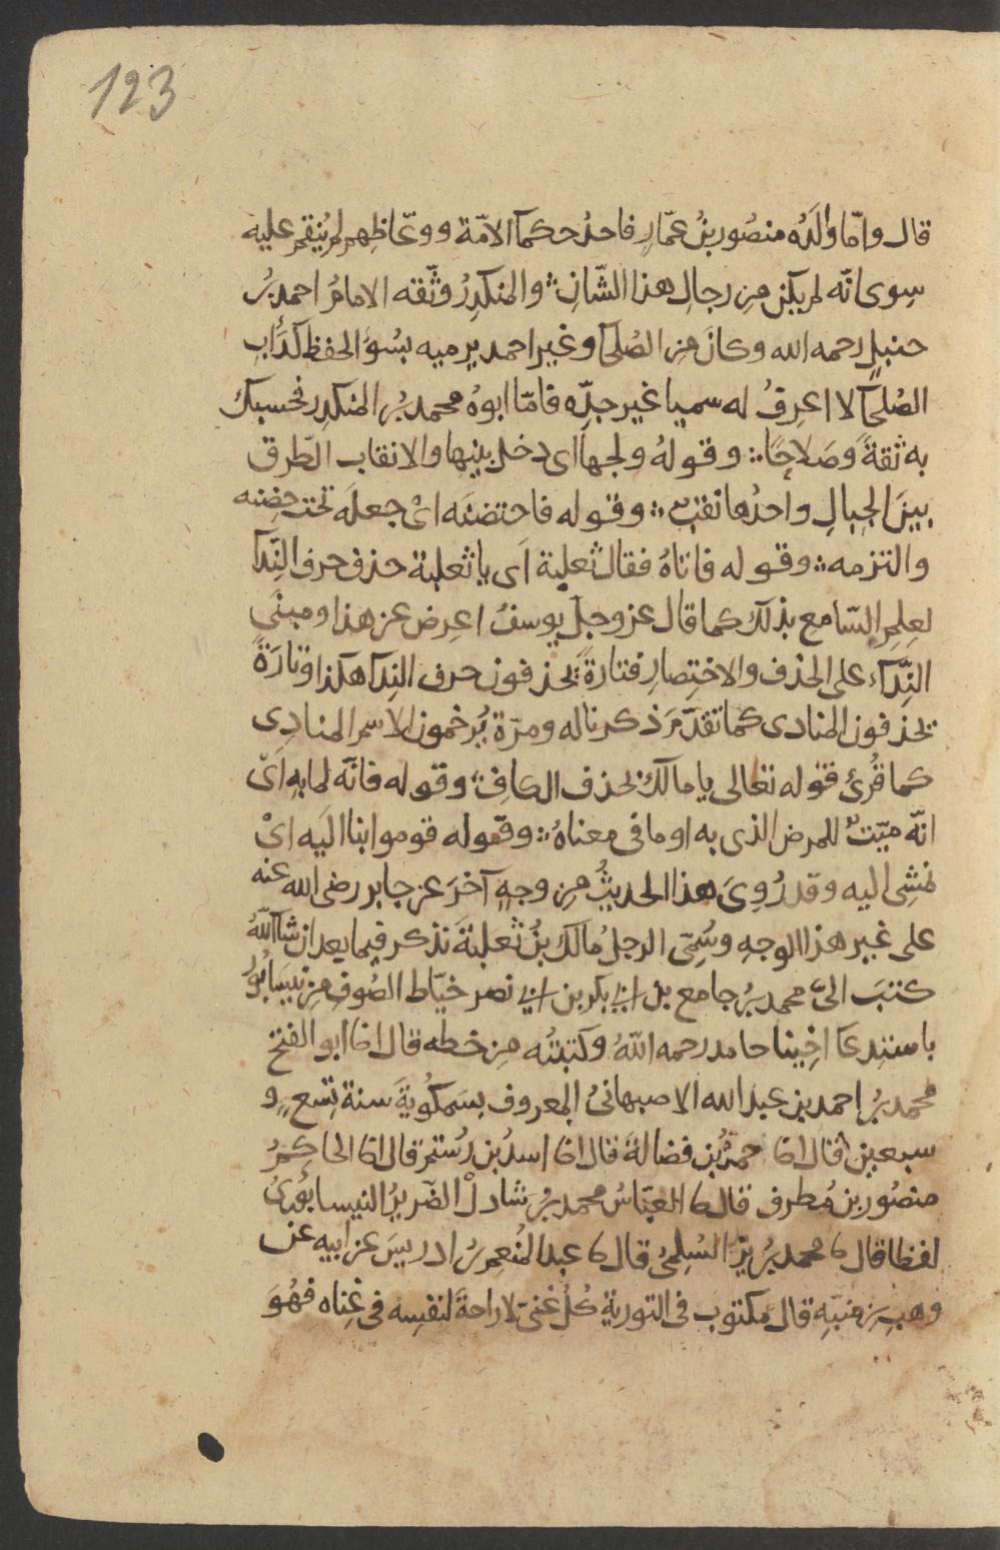 123
قال واما والده منصور بن عمار فاحد حكما الامة ووعاظهم لم ينقم عليه
سوى انه لم يكن من رجال هذا الشان ؛ والمنكدر وثقه الامام احمد بن
حنبل رحمه الله وكان من الصلحا وغير احمد يرميه بسوء الحفظ كدأب
الصلحا لا اعرف له سميا غير جده فاما ابوه محمد بن المنكدر فحسبك
به ثقة وصلاحا ؛ وقوله ولجها اى دخل بينها والانقاب الطرق
بين الجبال واحدها نقب ؛ وقوله فاحتضنه اى جعله تحت حضنه
والتزمه ؛ وقوله فاتاه فقال ثعلبة اى يا ثعلبة حذف حرف الندا
لعلم السامع بذلك كما قال عز وجل يوسف اعرض عن هذا ومبنى
النداء على الحذف والاختصار فتارة يحذفون حرف الندا هكذا وتارة
يحذفون المنادى كما تقدم ذكرنا له ومرة يرخمون الاسم المنادى
كما قرئ قوله تعالى يا مال بحذف الكاف ؛ وقوله فانه لما به اى
انه ميت للمرض الذى به او ما فى معناه ؛ وقوله قوموا بنا اليه اى
نمشى اليه وقد روى هذا الحديث من وجه آخر عن جابر رضى الله عنه
على غير هذا الوجه وسمى الرجل مالك بن ثعلبة نذكر فيما بعد ان شا الله
كتب الى محمد بن جامع بن ابى بكر بن ابى نصر خياط الصوف من نيسابور
باستدعا اخينا حامد رحمه الله وكتبته من خطه قال انا ابو الفتح
محمد بن احمد بن عبد الله الاصبهانى المعروف بسمكوية سنة تسع و
سبعين قال انا حمد بن فضالة قال انا اسد بن رستم قال انا الحاكم
منصور بن مطرف قال نا العباس محمد بن شادل الضرير النيسابورى
لفظا قال نا محمد بن يزيد السلمى قال نا عبد المنعم بن ادريس عن ابيه عن
وهب بن منبه قال مكتوب فى التورية كل غنى لا راحة لنفسه فى غناه فهو